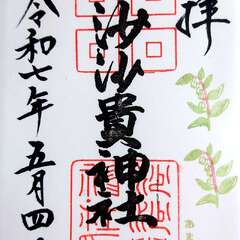 拝
沙沙貴神社
令和七年五月四